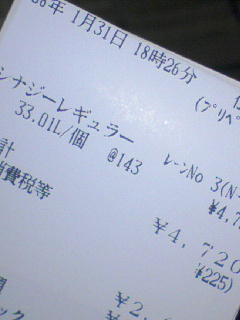 年 1月31日 18時26分
(プリペ
シナジーレギュラー
レーンNo 3(N
33.01L/個 @143
¥4,7
計 ¥4,720
消費税等 ¥225)
¥2,